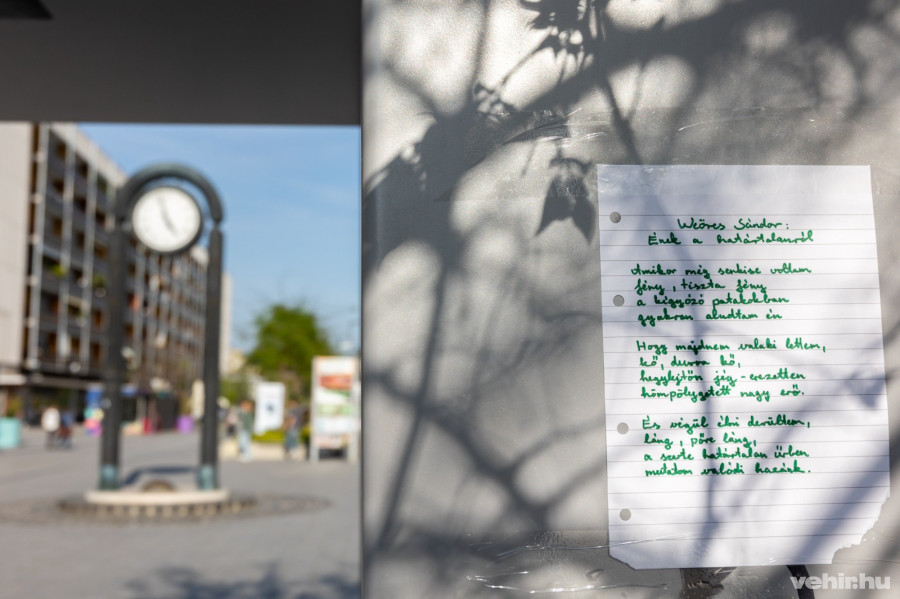 Weöres Sándor:
Ének a határtalanról
Amikor még senkise voltam
fény, tiszta fény
a kígyózó patakokban
gyakran aludtam én
Hogy majdnem valaki lettem,
kő, durva kő,
hegylejtőn jég-erezetten
hömpölygetett nagy erő.
És végül élni derültem,
láng, pőre láng,
a szerte határtalan űrben
mutatom valódi hazánk.
vehir.hu